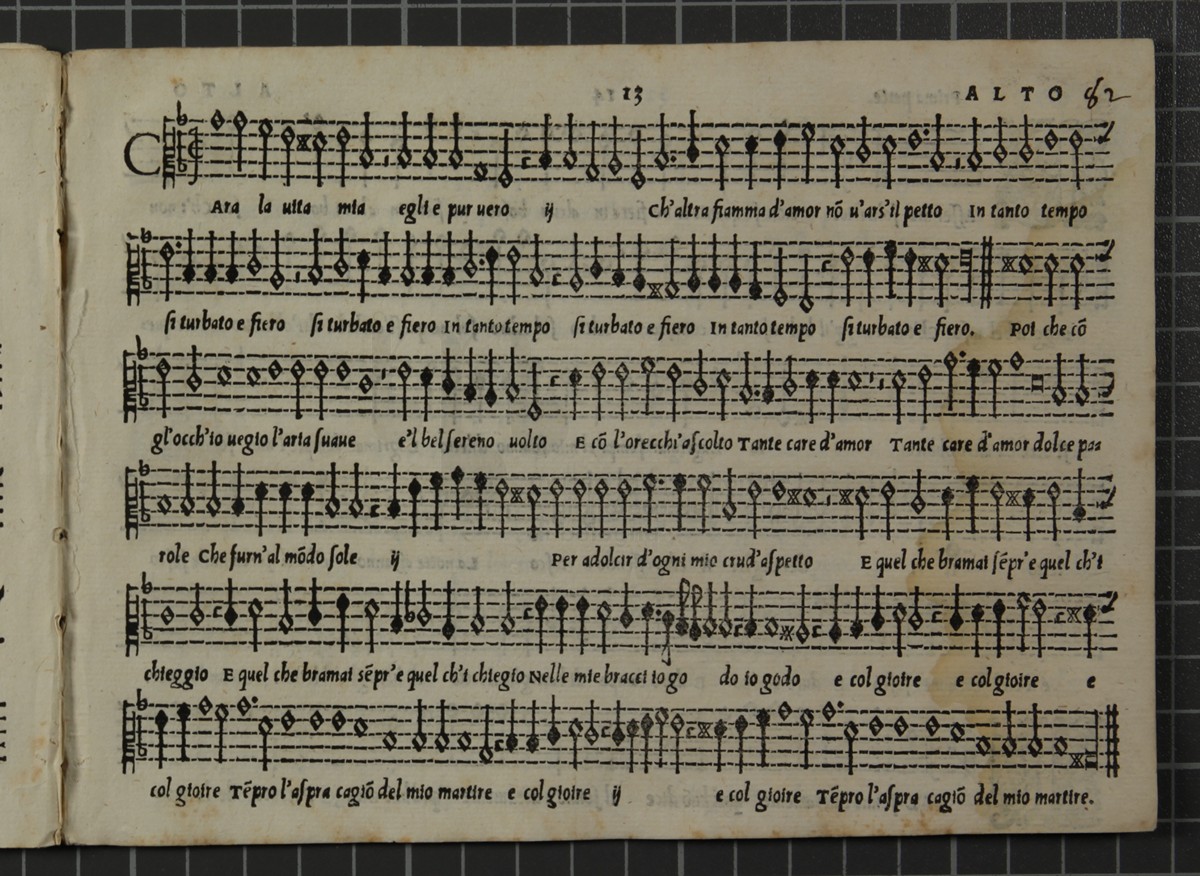 13 ALTO 82
CAra la uita mia egli e pur uero ij Ch'altra fiamma d'amor nõ u'ars'il petto In tanto tempo
si turbato e fiero si turbato e fiero In tanto tempo si turbato e fiero In tanto tempo si turbato e fiero. Poi che cõ
gl'occh'io uegio l'aria suaue e'l bel sereno uolto E cõ l'orecchi'ascolto Tante care d'amor Tante care d'amor dolce paa
role Che furn'al mõdo sole ij Per adolcir d'ogni mio crud'aspetto E quel che bramai sẽpr'e quel ch'i
chieggio E quel che bramai sẽpr'e quel ch'i chiegio Nelle mie bracci io go do io godo e col gioire e col gioire e
col gioire Tẽpro l'aspra cagiõ del mio martire e col gioire ij e col gioire Tẽpro l'aspra cagiõ del mio martire.